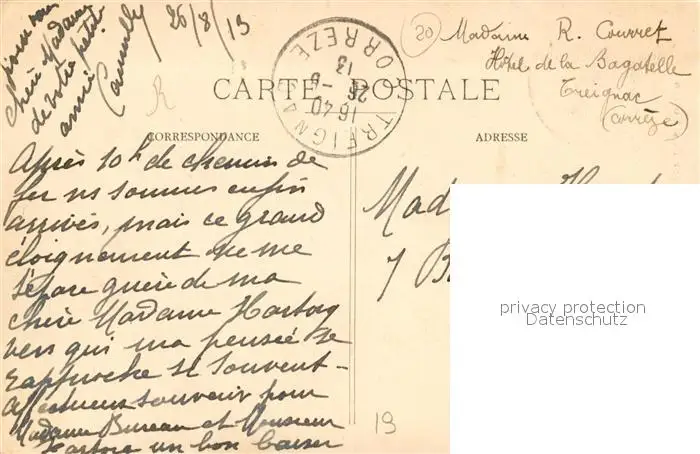 26/8/13
chère Madame
de votre petite
amie
TREIGNAC
16 40
26 - 8
13
CORRÈZE
20
Madame R. Courret
Hôtel de la Bagatelle
Treignac
(Corrèze)
R
CARTE POSTALE
CORRESPONDANCE
ADRESSE
Après 10h de chemin de
fer ns sommes enfin
arrivés, mais ce grand
éloignement ne me
sépare guère de ma
chère Madame Hartog
vers qui ma pensée se
rapproche si souvent -
Affectueux souvenir pour
Madame Bureau et Monsieur
Hartog un bon baiser
Mad
7 B
19
privacy protection
Datenschutz